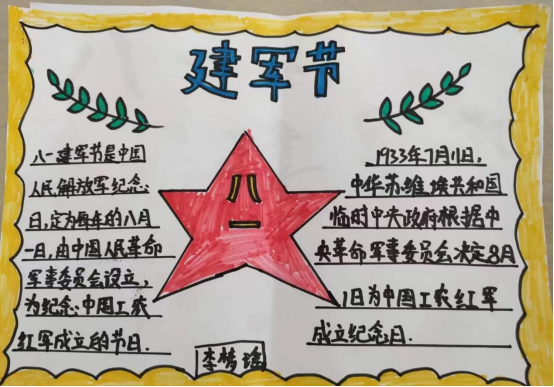 建军节
八一建军节是中国
人民解放军纪念
日,定为每年的八月
一日,由中国人民革命
军事委员会设立,
为纪念中国工农
红军成立的节日.
八一
1933年7月11日,
中华苏维埃共和国
临时中央政府根据中
央革命军事委员会决定8月
1日为中国工农红军
成立纪念日.
李梦瑶